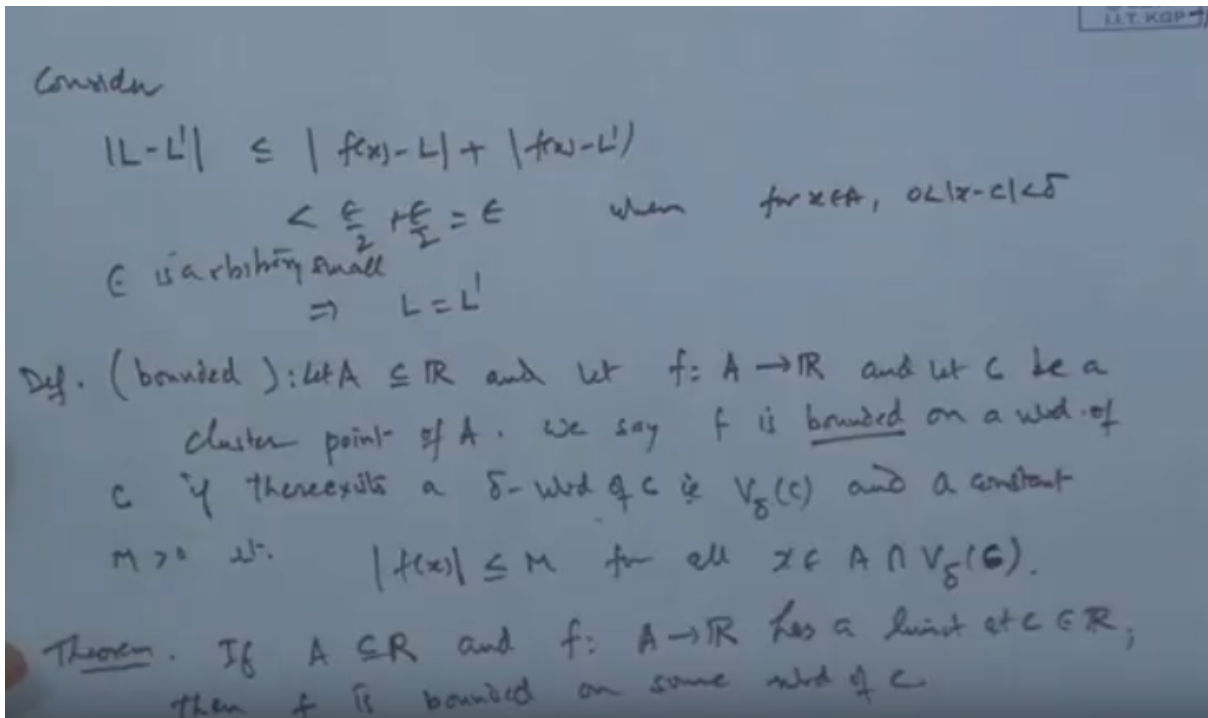 I.I.T. KGP
Consider
|L-L'| ≤ |f(x)-L| + |f(x)-L'|
< ε/2 + ε/2 = ε when for x∈A, 0<|x-c|<δ
ε is arbitrary small
⇒ L = L'
Def. (bounded): Let A ⊆ ℝ and let f: A → ℝ and let c be a
cluster point of A. we say f is bounded on a nbd. of
c if there exists a δ-nbd of c ie V_δ(c) and a constant
M > 0 st. |f(x)| ≤ M for all x ∈ A ∩ V_δ(c).
Theorem. If A ⊆ R and f: A → ℝ has a limit at c ∈ ℝ,
then f is bounded on some nbd of c.